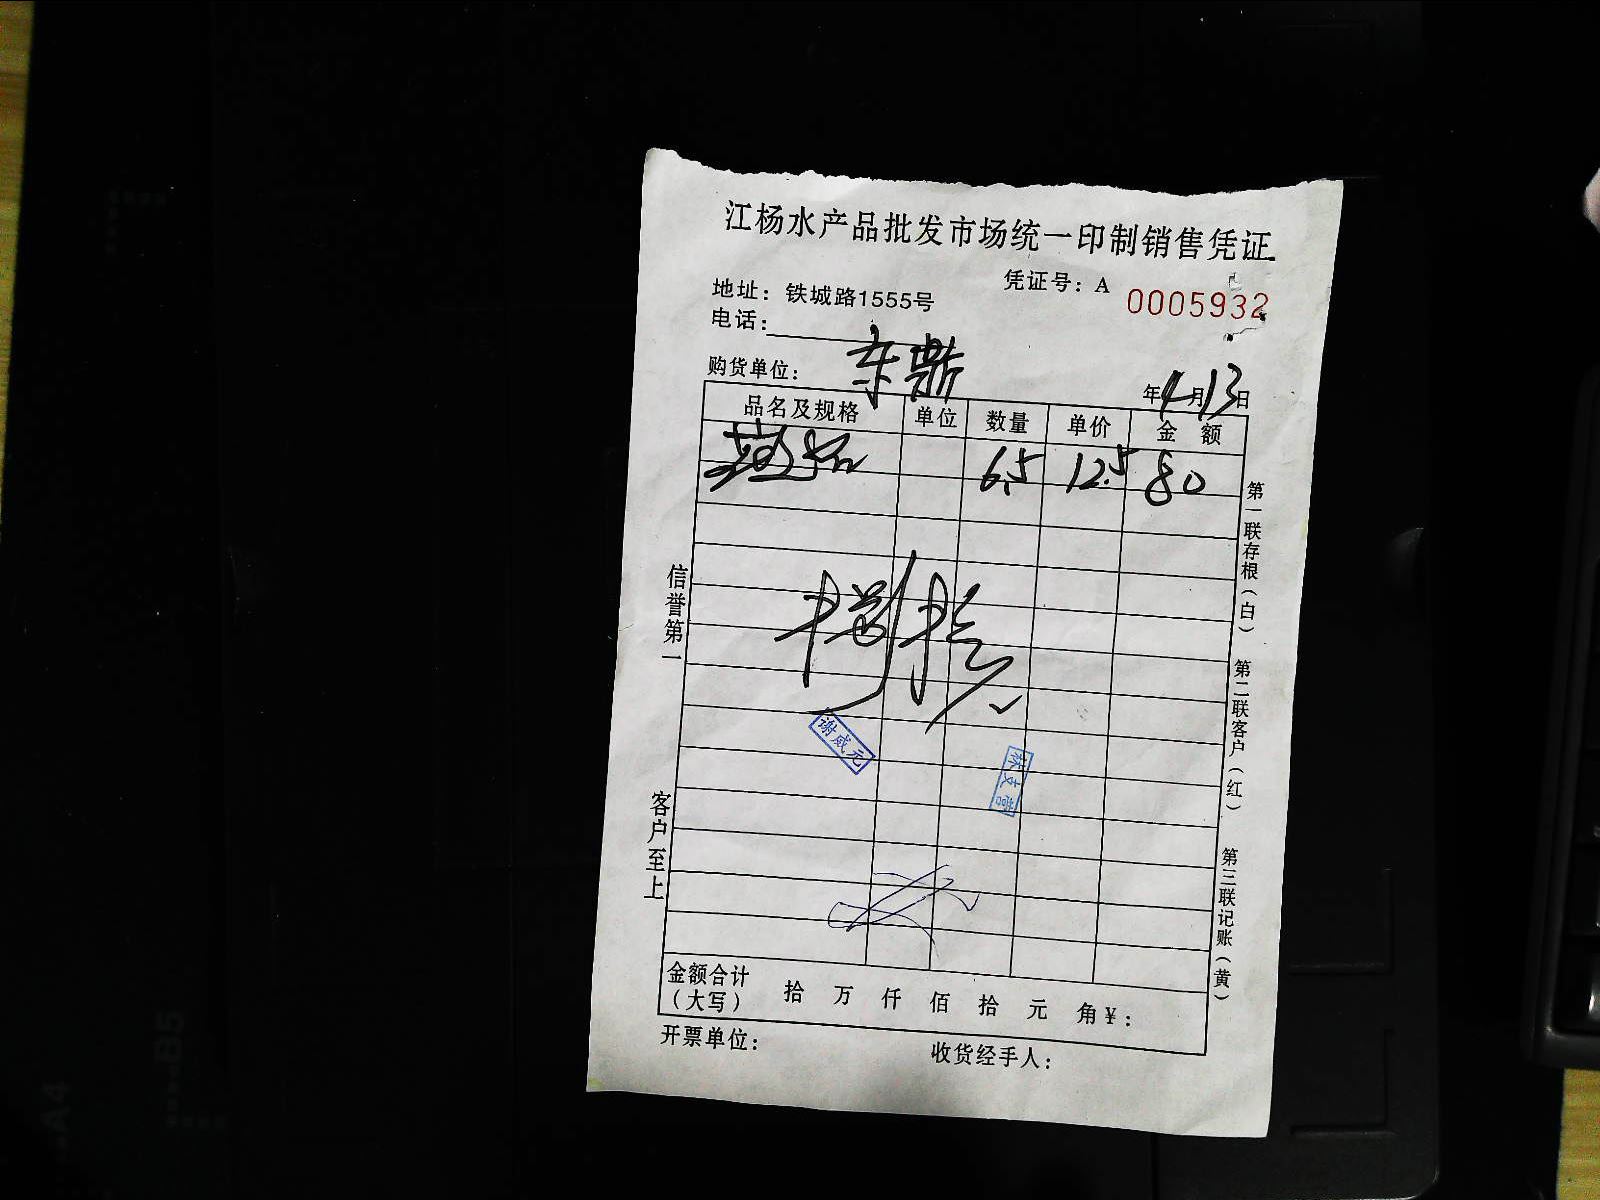 江杨水产品批发市场统一印制销售凭证
凭证号：A 0005932
地址：铁城路1555号
电话：
购货单位： 东鼎
年4月13日
品名及规格 单位 数量 单价 金 额
6.5 12.5 80
谢咸元
信誉第一 客户至上
第一联存根（白） 第二联客户（红） 第三联记账（黄）
金额合计
（大写） 拾 万 仟 佰 拾 元 角 ¥：
开票单位： 收货经手人：